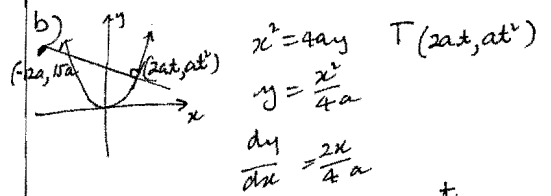 b)
y
(-2a, 15a)
(2at, at²)
x
x² = 4ay T(2at, at²)
y = x²/4a
dy/dx = 2x/4a
t